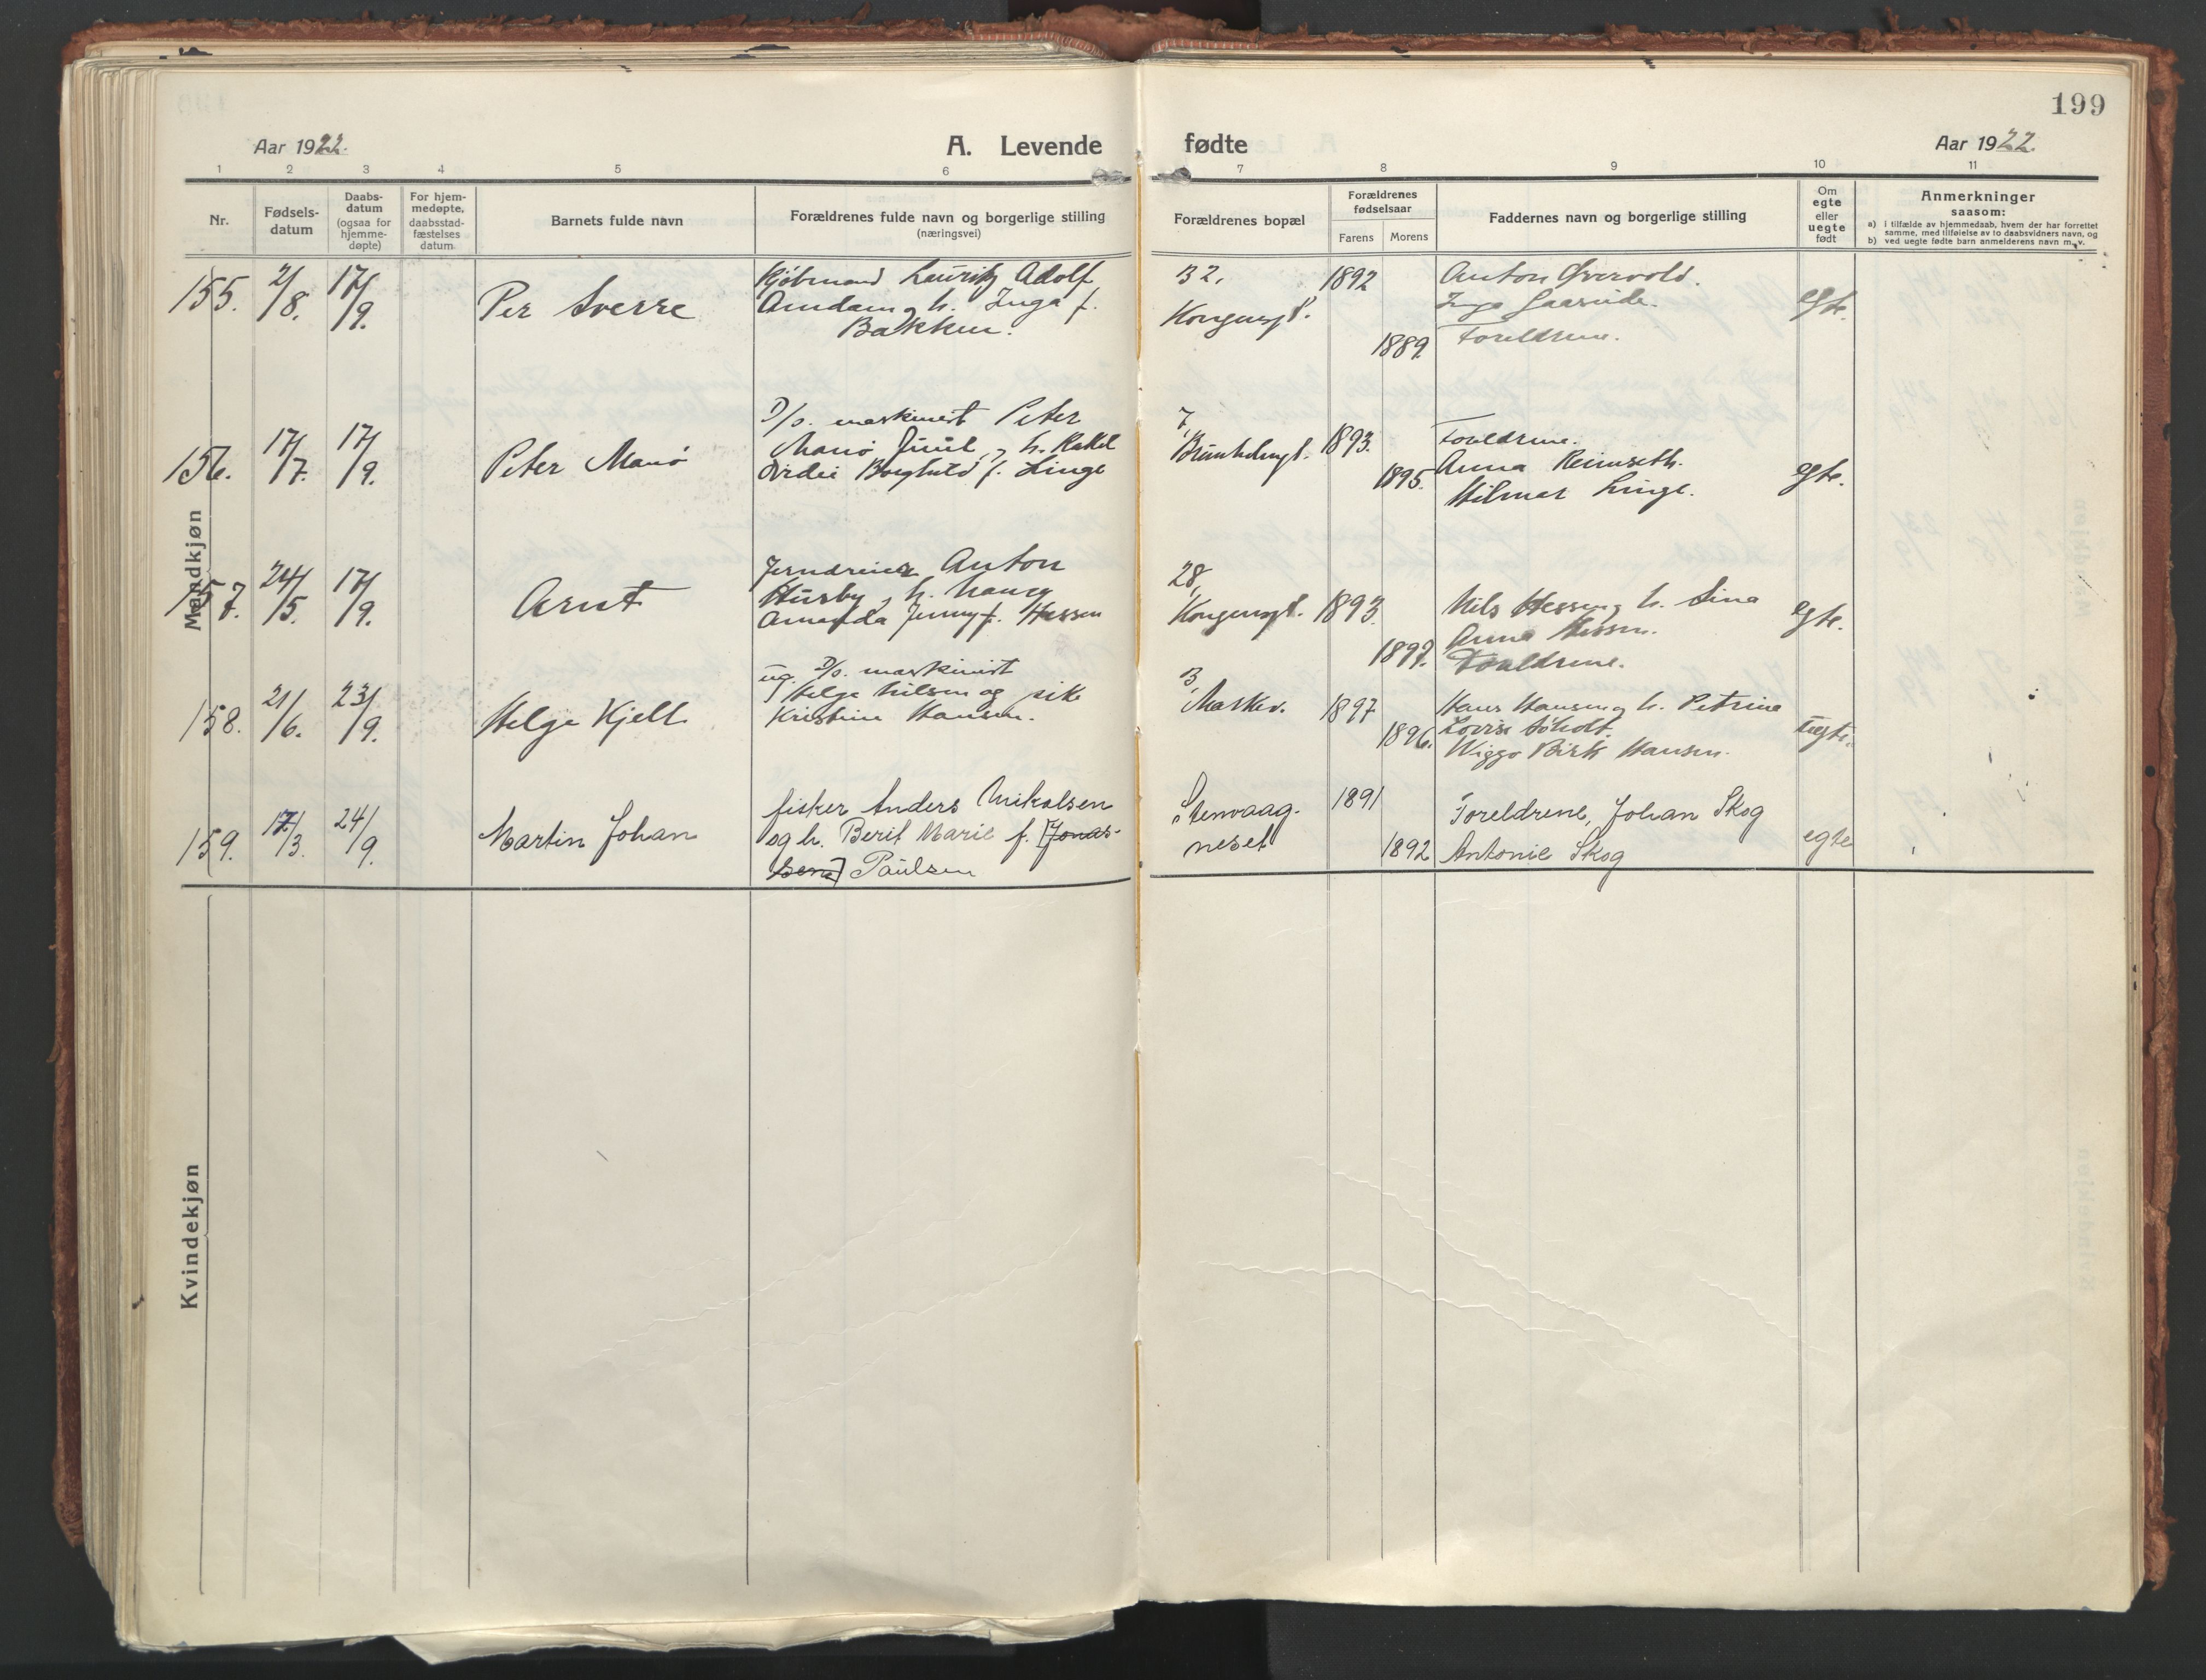 199
Aar 1922.
A. Levende fødte
Aar 1922.
1 2 3 4 5 6 7 8 9 10 11
Nr.
Fødsels-
datum
Daabs-
datum
(ogsaa for
hjemme-
døpte)
For hjem-
medøpte,
daabsstad-
fæstelses
datum
Barnets fulde navn
Forældrenes fulde navn og borgerlige stilling
(næringsvei)
Forældrenes bopæl
Forældrenes
fødselsaar
Farens Morens
Faddernes navn og borgerlige stilling
Om
egte
eller
uegte
født
Anmerkninger
saasom:
a) i tilfælde av hjemmedaab, hvem der har forrettet
samme, med tilføielse av to daabsvidners navn, og
b) ved uegte fødte barn anmelderens navn m. v.
Mandkjøn
155. 2/8. 17/9. Per Sverre
Kjøbmand Lauritz Adolf
Amdam og h. Inga f.
Bakken.
32,
Kongensgt.
1892
1889
Anton Øvervold.
Inga
Foreldrene.
egte.
156. 17/7. 17/9. Peter Manø
D/s. maskinist Peter
Manø Juul, og h. Rakel
Borghild f. Linge
7,
1893.
1895.
Foreldrene.
Anna Reimseth.
Hilmar Linge.
egte.
157. 24/5. 17/9. Arnt
Jerndreier Anton
Husby, h. Nancy
Amanda Jenny f. Hessen
28,
Kongensgt.
1893.
1899.
Nils Hessen og h. Sina
Anna Hessen.
Foreldrene.
egte.
158. 21/6. 23/9. Helge Kjell
ug. D/s. maskinist
Helge Nilsen og pike
Kristine Hansen.
3,
1897
1896.
Hans Hansen og h. Petrine
Lovise
Wiggo Birk Hansen.
uegte.
159. 17/3. 24/9. Martin Johan
fisker Anders Mikalsen
og h. Berit Marie f. [Jonas-
sen] Paulsen
Stenvaag-
neset
1891
1892
Foreldrene, Johan Skog
Antonie Skog
egte
Kvindekjøn